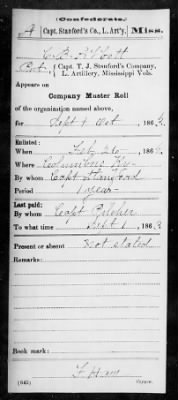 Confederate.
A | Capt. Stanford's Co., L. Art'y. | Miss.
C. B.
Capt. T. J. Stanford's Company,
L. Artillery, Mississippi Vols.
Appears on
Company Muster Roll
of the organization named above,
for Sept & Oct , 186
Enlisted:
When Feb 26 , 186
Where Columbus Ky
By whom Capt Stanford
Period 1 year
Last paid:
By whom Capt
To what time Sept 1 , 186
Present or absent Not stated
Remarks:
Book mark:
(642) Copyist.